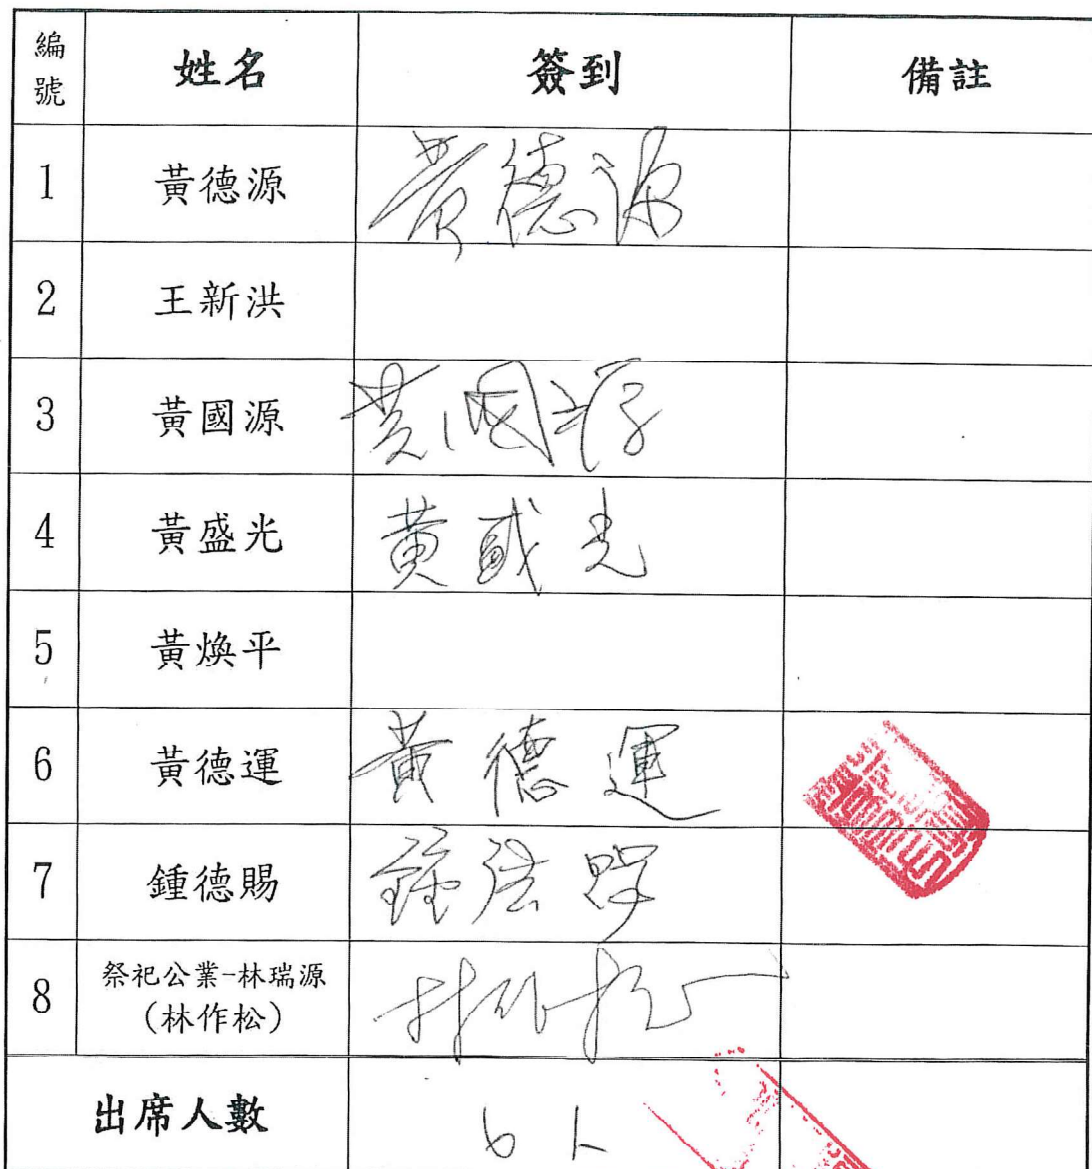 編號 姓名 簽到 備註
1 黃德源 黃德源
2 王新洪
3 黃國源 黃國源
4 黃盛光 黃盛光
5 黃煥平
6 黃德運 黃德運
7 鍾德賜 鍾德賜
8 祭祀公業-林瑞源
(林作松) 林作松
出席人數 6人